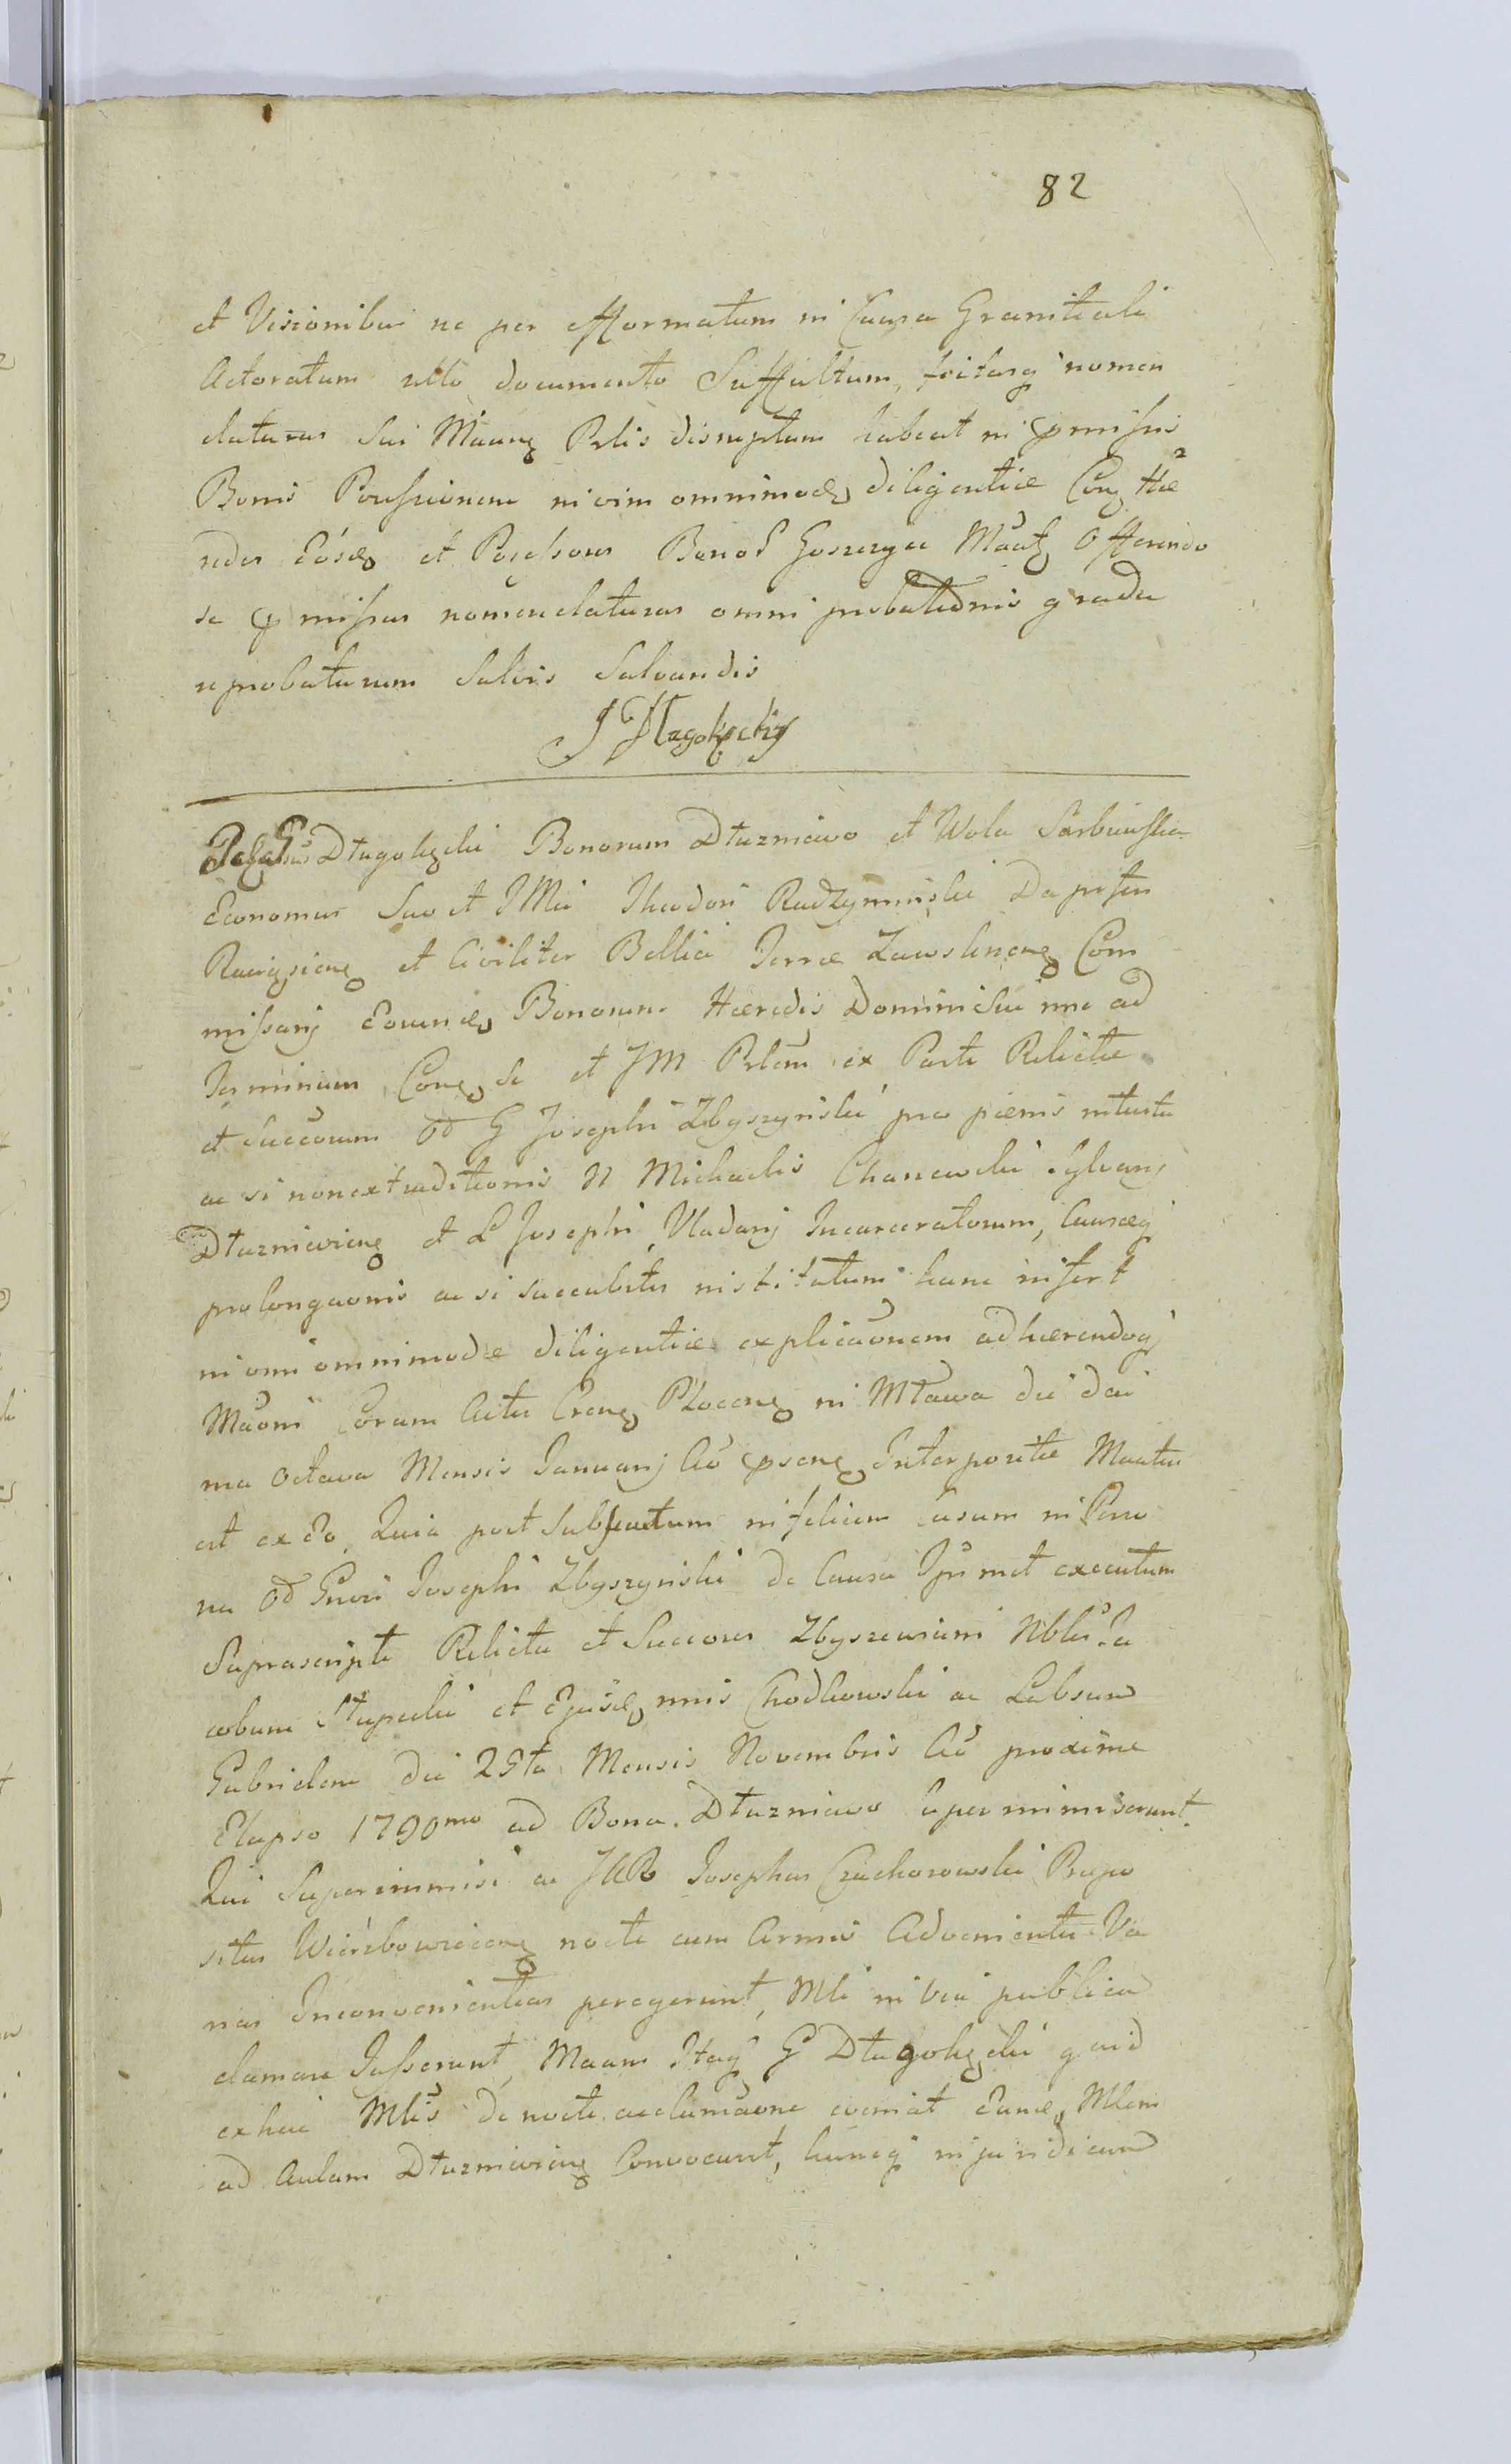 82
et Visionibus ne per efformatum in Causa Granitiali
Actoratum ullo documento Suffultum, fictasq nomen
claturas Sui Maung Prlis disruptum habeat in praemissis
Bonis Possessionem in vim omnimodae diligentiae Cong Hae
redes Eosdę et Possessores Bonoɼ Goszczyce Maatg Offerendo
se praemissas nomenclaturas omni probationis gradu
reprobaturum Salvis Salvandis
J Dlugołęcki
Długołęcki Bonorum Dłuzniewo et Wola Sarbiewska
Economus Suo et JMci Theodori Radzyminski Dapiferi
Raciąsieng et Civiliter Bellici Terrae Zawskrieng Com
missarij Eorundę Bonorum Haeredis Domini Sui nne ad
Terminum Cong se et JM Prlem ex Parte Relictae
et Succorum Od G Josephi Zbyszyński pro paenis intuitu
ac si nonextraditionis N Michaelis Chanewski Sylvanj
Dłuznievieng et L Josephi Vladarj Incarceratorum, Causaeq
prolongaonis ac si succubitis institutum hanc infert
in vim omnimodae diligentiae explicaonem adhaerendoq
Maoni Coram Actis Creng Ploceng in Mława die deci
ma octava Mensis Januarij Ao pseng Interpositae Maatus
est ex Eo, Quia post Subsecutum infelicem casum in Perso
na Od Gnosi Josephi Zbyszyński de Causa Ipsimet executum
Suprascripti Relicta et Succores Zbyszewieni Nbles Ja
cobum Stupecki et Ejusdę nnis Chodkowski ac Labsund
Gabrielem die 29ta Mensis Novembris Ao proxime
Elapso 1790mo ad Bona Dłuzniewo Superimmiserunt
Qui Superimmisi ac JAR Josephus Czachorowski Praepo
situs Wierzbowieceng nocte cum Armis Advenientes Va
rias Inconvenientias peregerunt, Mli in via publica
clamare Jusserunt, Maans Itaq G Długołęcki quid
ex hac Mlis de nocte acclamaone eveniat Eandę Mlem
ad Aulam Dłuznieviens Convocavit, hancq injuridicam